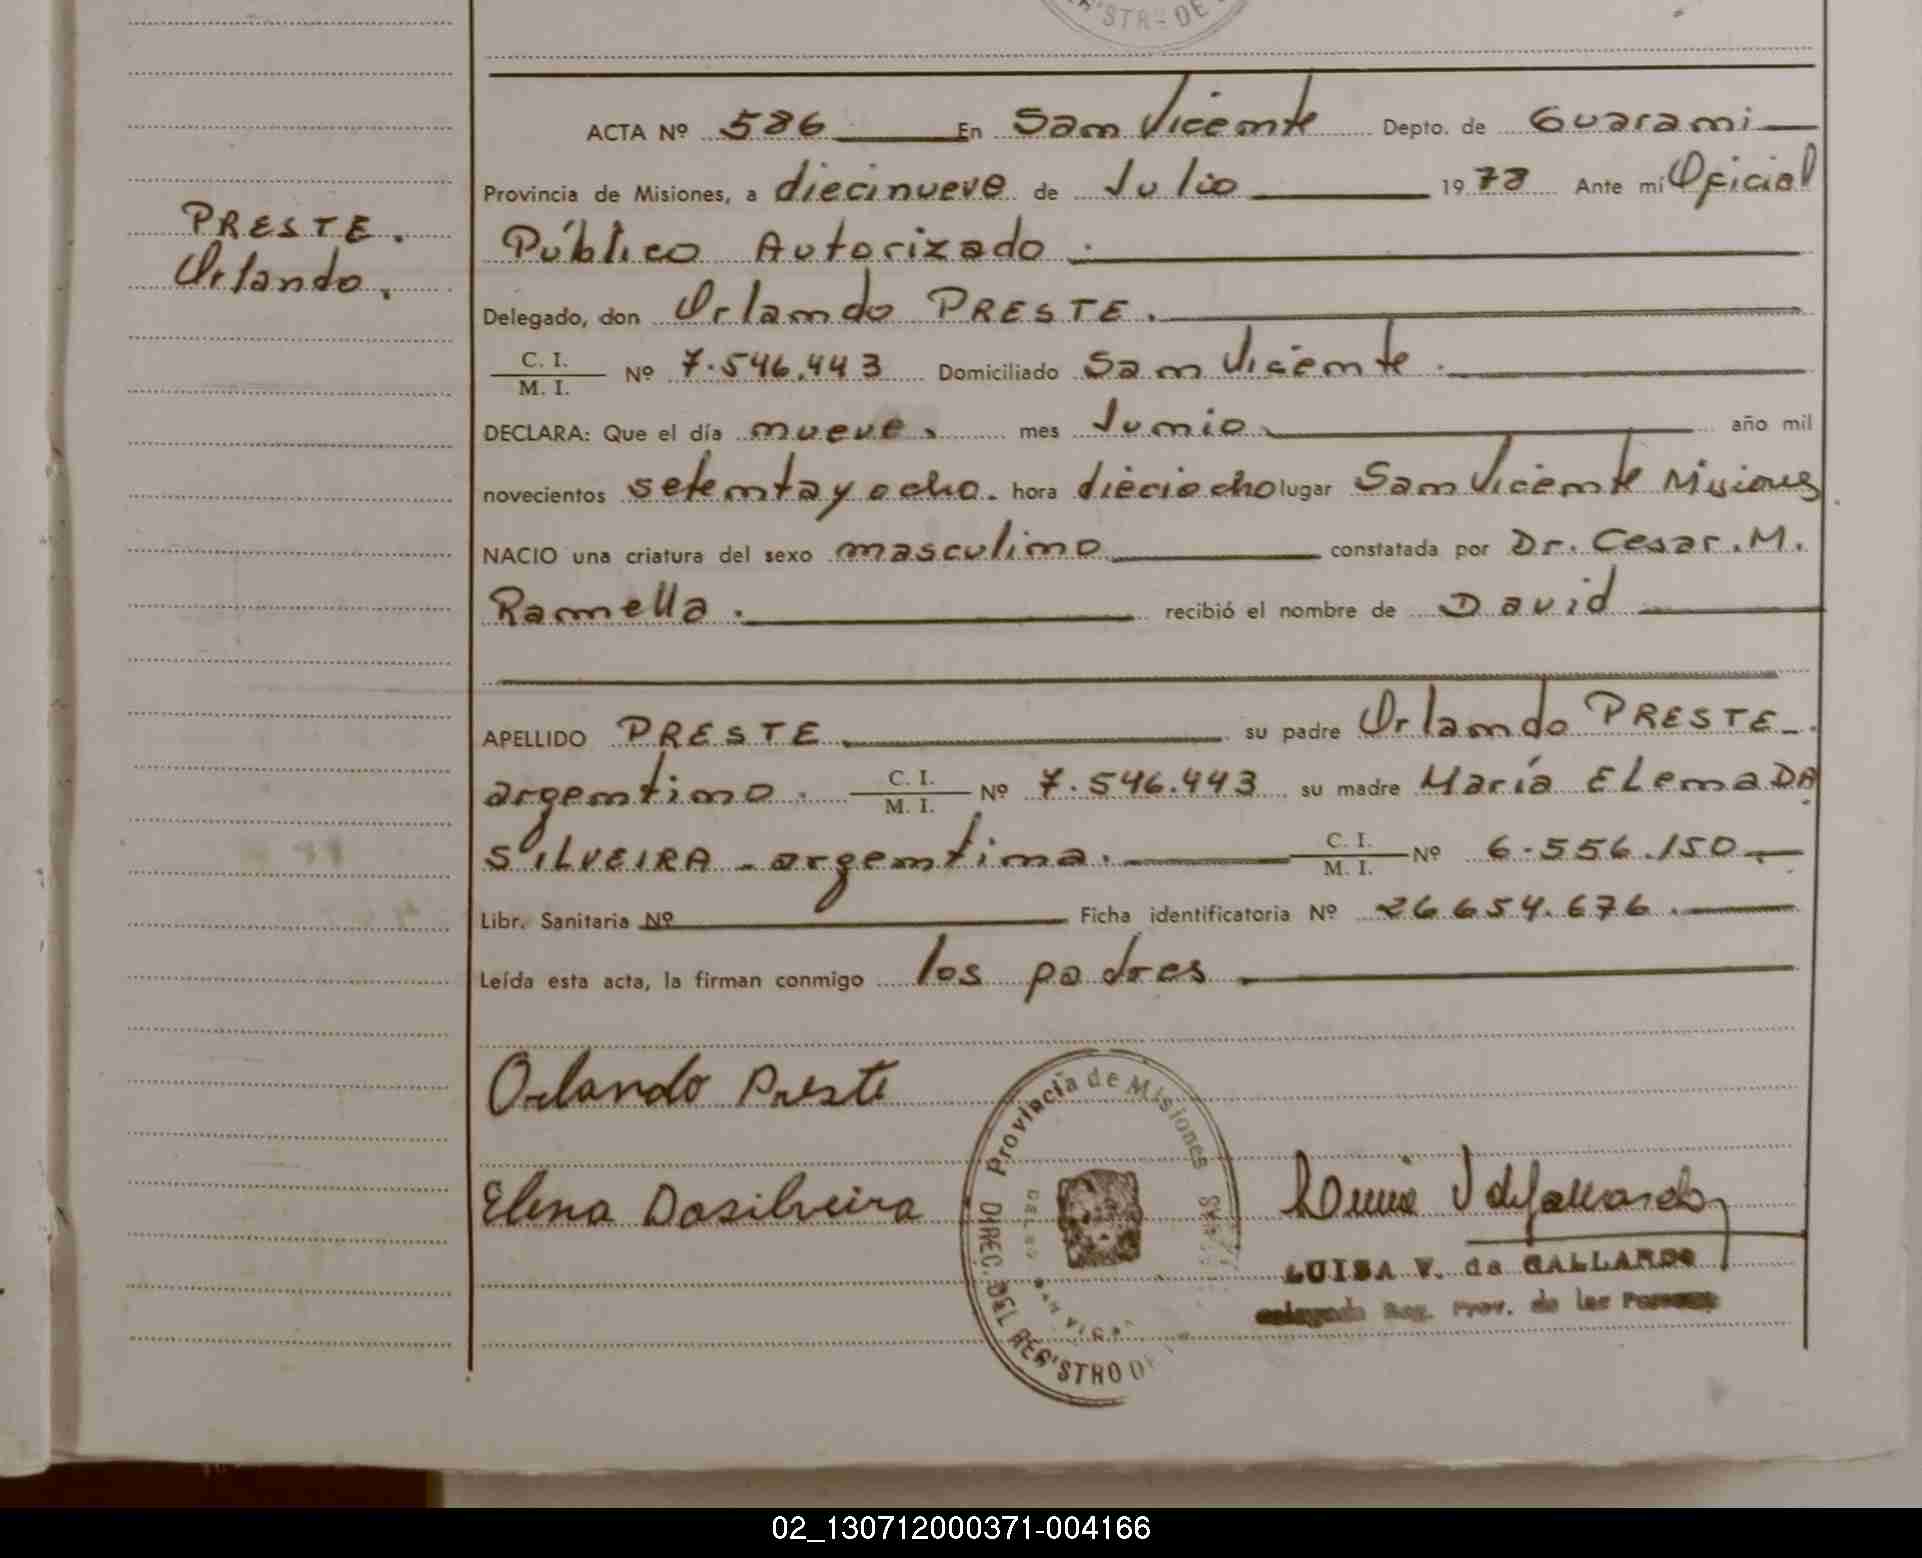 ISTR DE
ACTA Nº 586 En San Vicente Depto. de Guarani
Provincia de Misiones, a diecinueve de Julio 1978 Ante mí Oficial
Público Autorizado.
PRESTE.
Orlando.
Delegado, don Orlando PRESTE.
C. I. / M. I. Nº 7.546.443 Domiciliado San Vicente.
DECLARA: Que el día nueve. mes Junio. año mil
novecientos setenta y ocho. hora dieciocho lugar San Vicente Misiones
NACIO una criatura del sexo masculino constatada por Dr. Cesar. M.
Ramella. recibió el nombre de David
APELLIDO PRESTE. su padre Orlando PRESTE-.
argentino. C. I. / M. I. Nº 7.546.443 su madre María ELena DA
SILVEIRA - argentina. C. I. / M. I. Nº 6.556.150
Libr. Sanitaria Nº Ficha identificatoria Nº 26654.676.
Leída esta acta, la firman conmigo los padres
Orlando Preste
Elena Dasilveira
Provincia de Misiones
DIREC. DEL REGISTRO DE
LUISA V. de GALLARDO
Reg. Prov. de las Personas
02_130712000371-004166